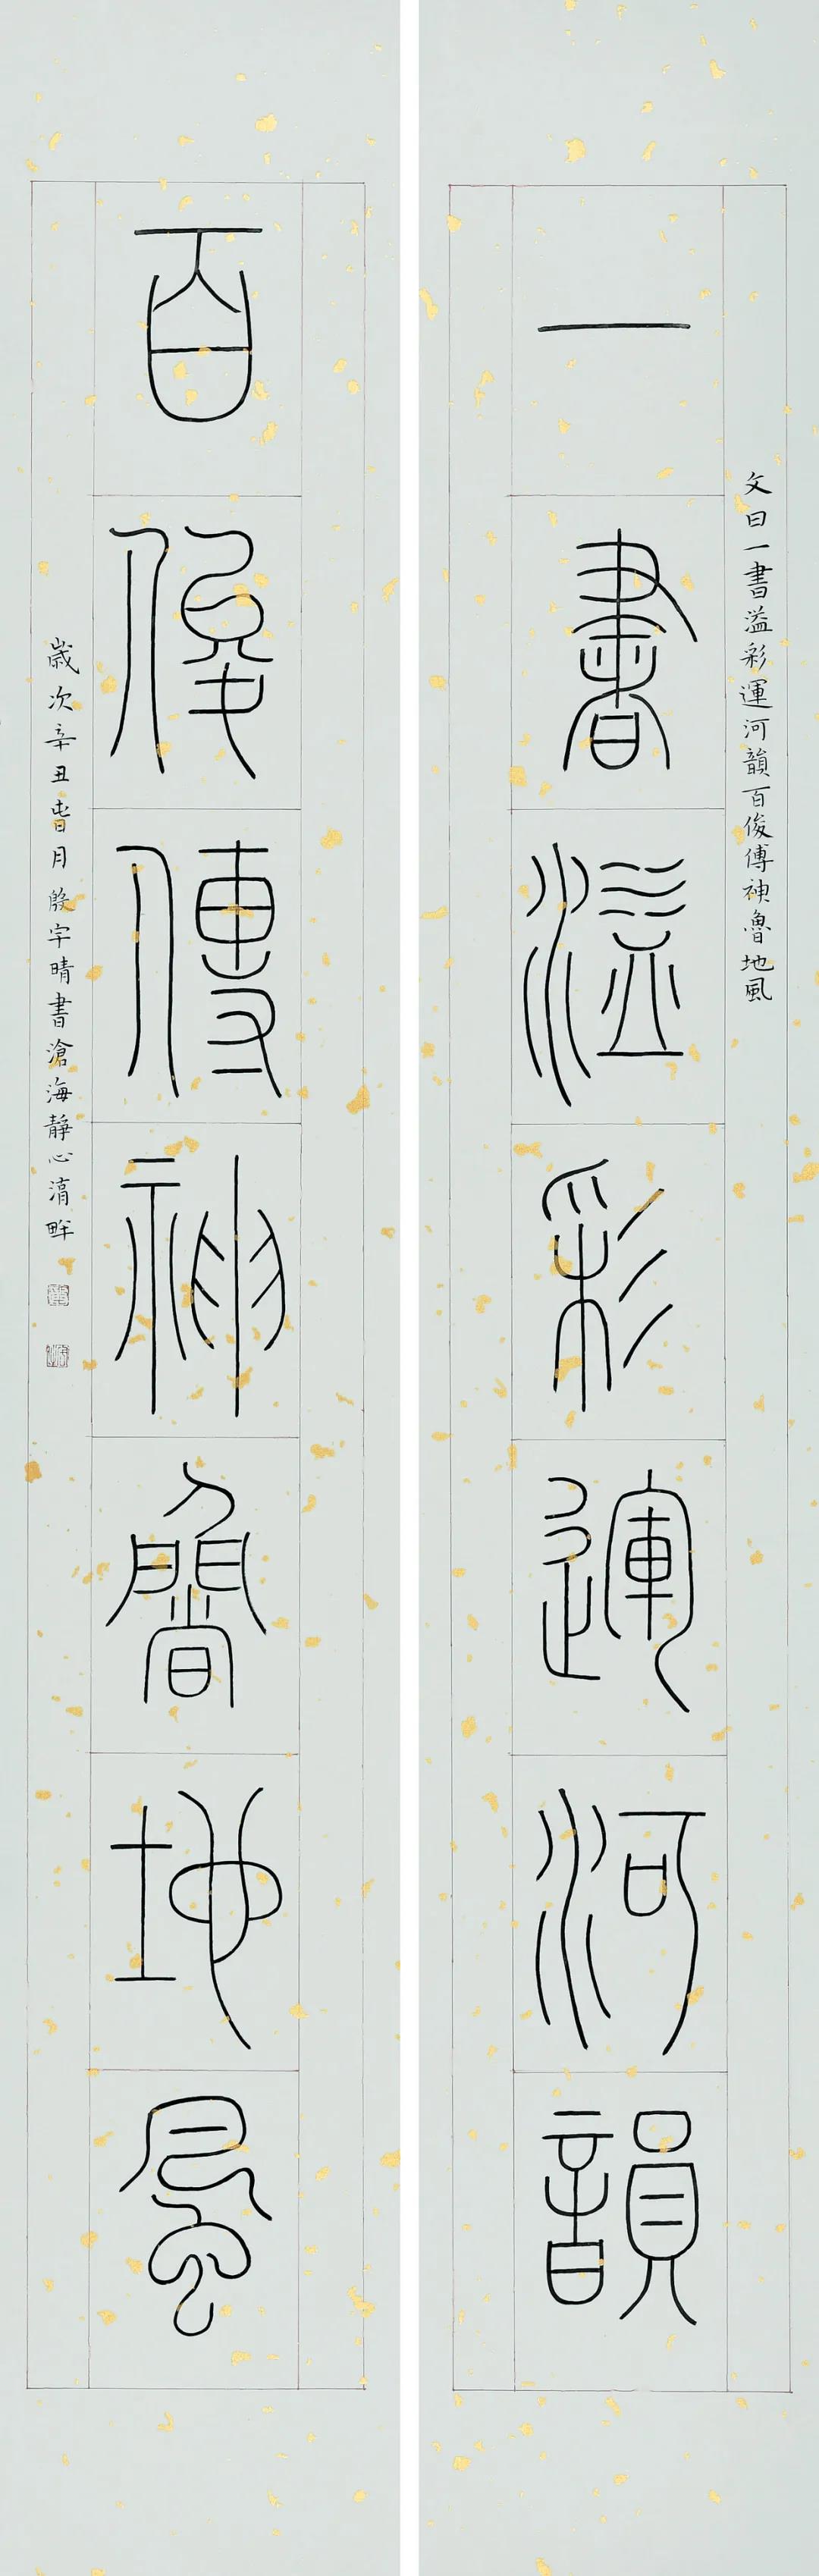 一書溢彩運河韻
文曰一書溢彩運河韻百俊傳神魯地風
百俊傳神魯地風
歲次辛丑春月殷宇晴書滄海靜心清畔